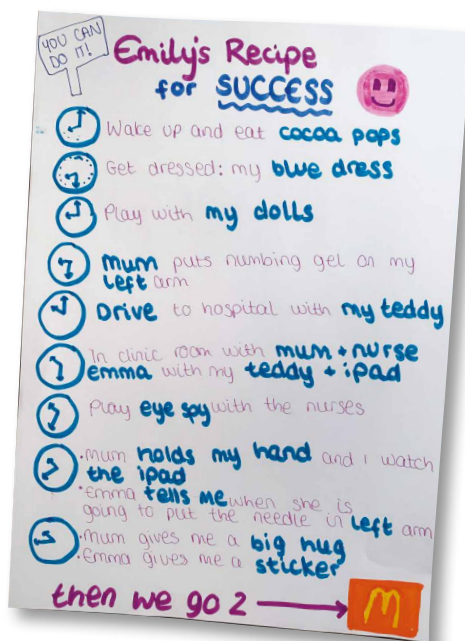 YOU CAN
DO IT!
Emily's Recipe
for SUCCESS
Wake up and eat cocoa pops
Get dressed: my blue dress
Play with my dolls
mum puts numbing gel on my
left arm
Drive to hospital with my teddy
In clinic room with mum + nurse
emma with my teddy + ipad
Play eye spy with the nurses
•Mum holds my hand and I watch
the ipad
•Emma tells me when she is
going to put the needle in left arm
•Mum gives me a big hug
•Emma gives me a sticker
then we go 2
M